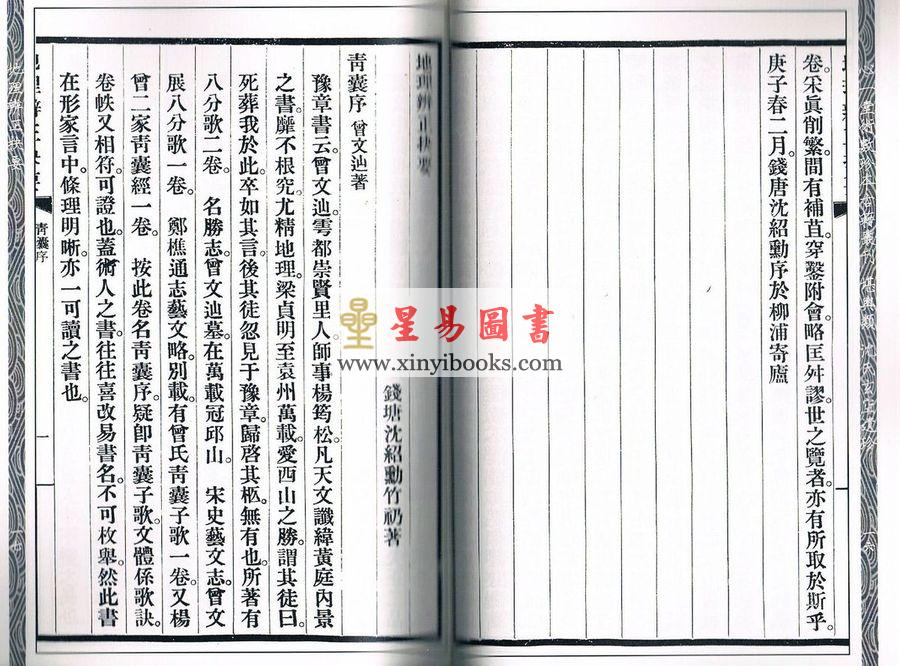 卷。采眞削繁。間有補苴。穿鑿附會。略匡舛謬。世之覽者。亦有所取於斯乎。
庚子春二月。錢唐沈紹勳序於柳浦寄廬
地理辨正抉要
錢塘沈紹勳竹礽著
靑囊序 曾文辿著
豫章書云。曾文辿。雩都崇賢里人。師事楊筠松。凡天文讖緯黃庭內景
之書。靡不根究。尤精地理。梁貞明至袁州萬載。愛西山之勝。謂其徒曰。
死葬我於此。卒如其言。後其徒忽見于豫章。歸啓其柩。無有也。所著有
八分歌二卷。 名勝志。曾文辿墓。在萬載冠邱山。 宋史藝文志。曾文
展八分歌一卷。 鄭樵通志藝文略。別載。有曾氏靑囊子歌一卷。又楊
曾二家靑囊經一卷。 按此卷名靑囊序。疑卽靑囊子歌。文體係歌訣。
卷帙又相符。可證也。蓋術人之書。往往喜改易書名。不可枚舉。然此書
在形家言中。條理明晰。亦一可讀之書也。
靑囊序
一
星易圖書
www.xinyibooks.com